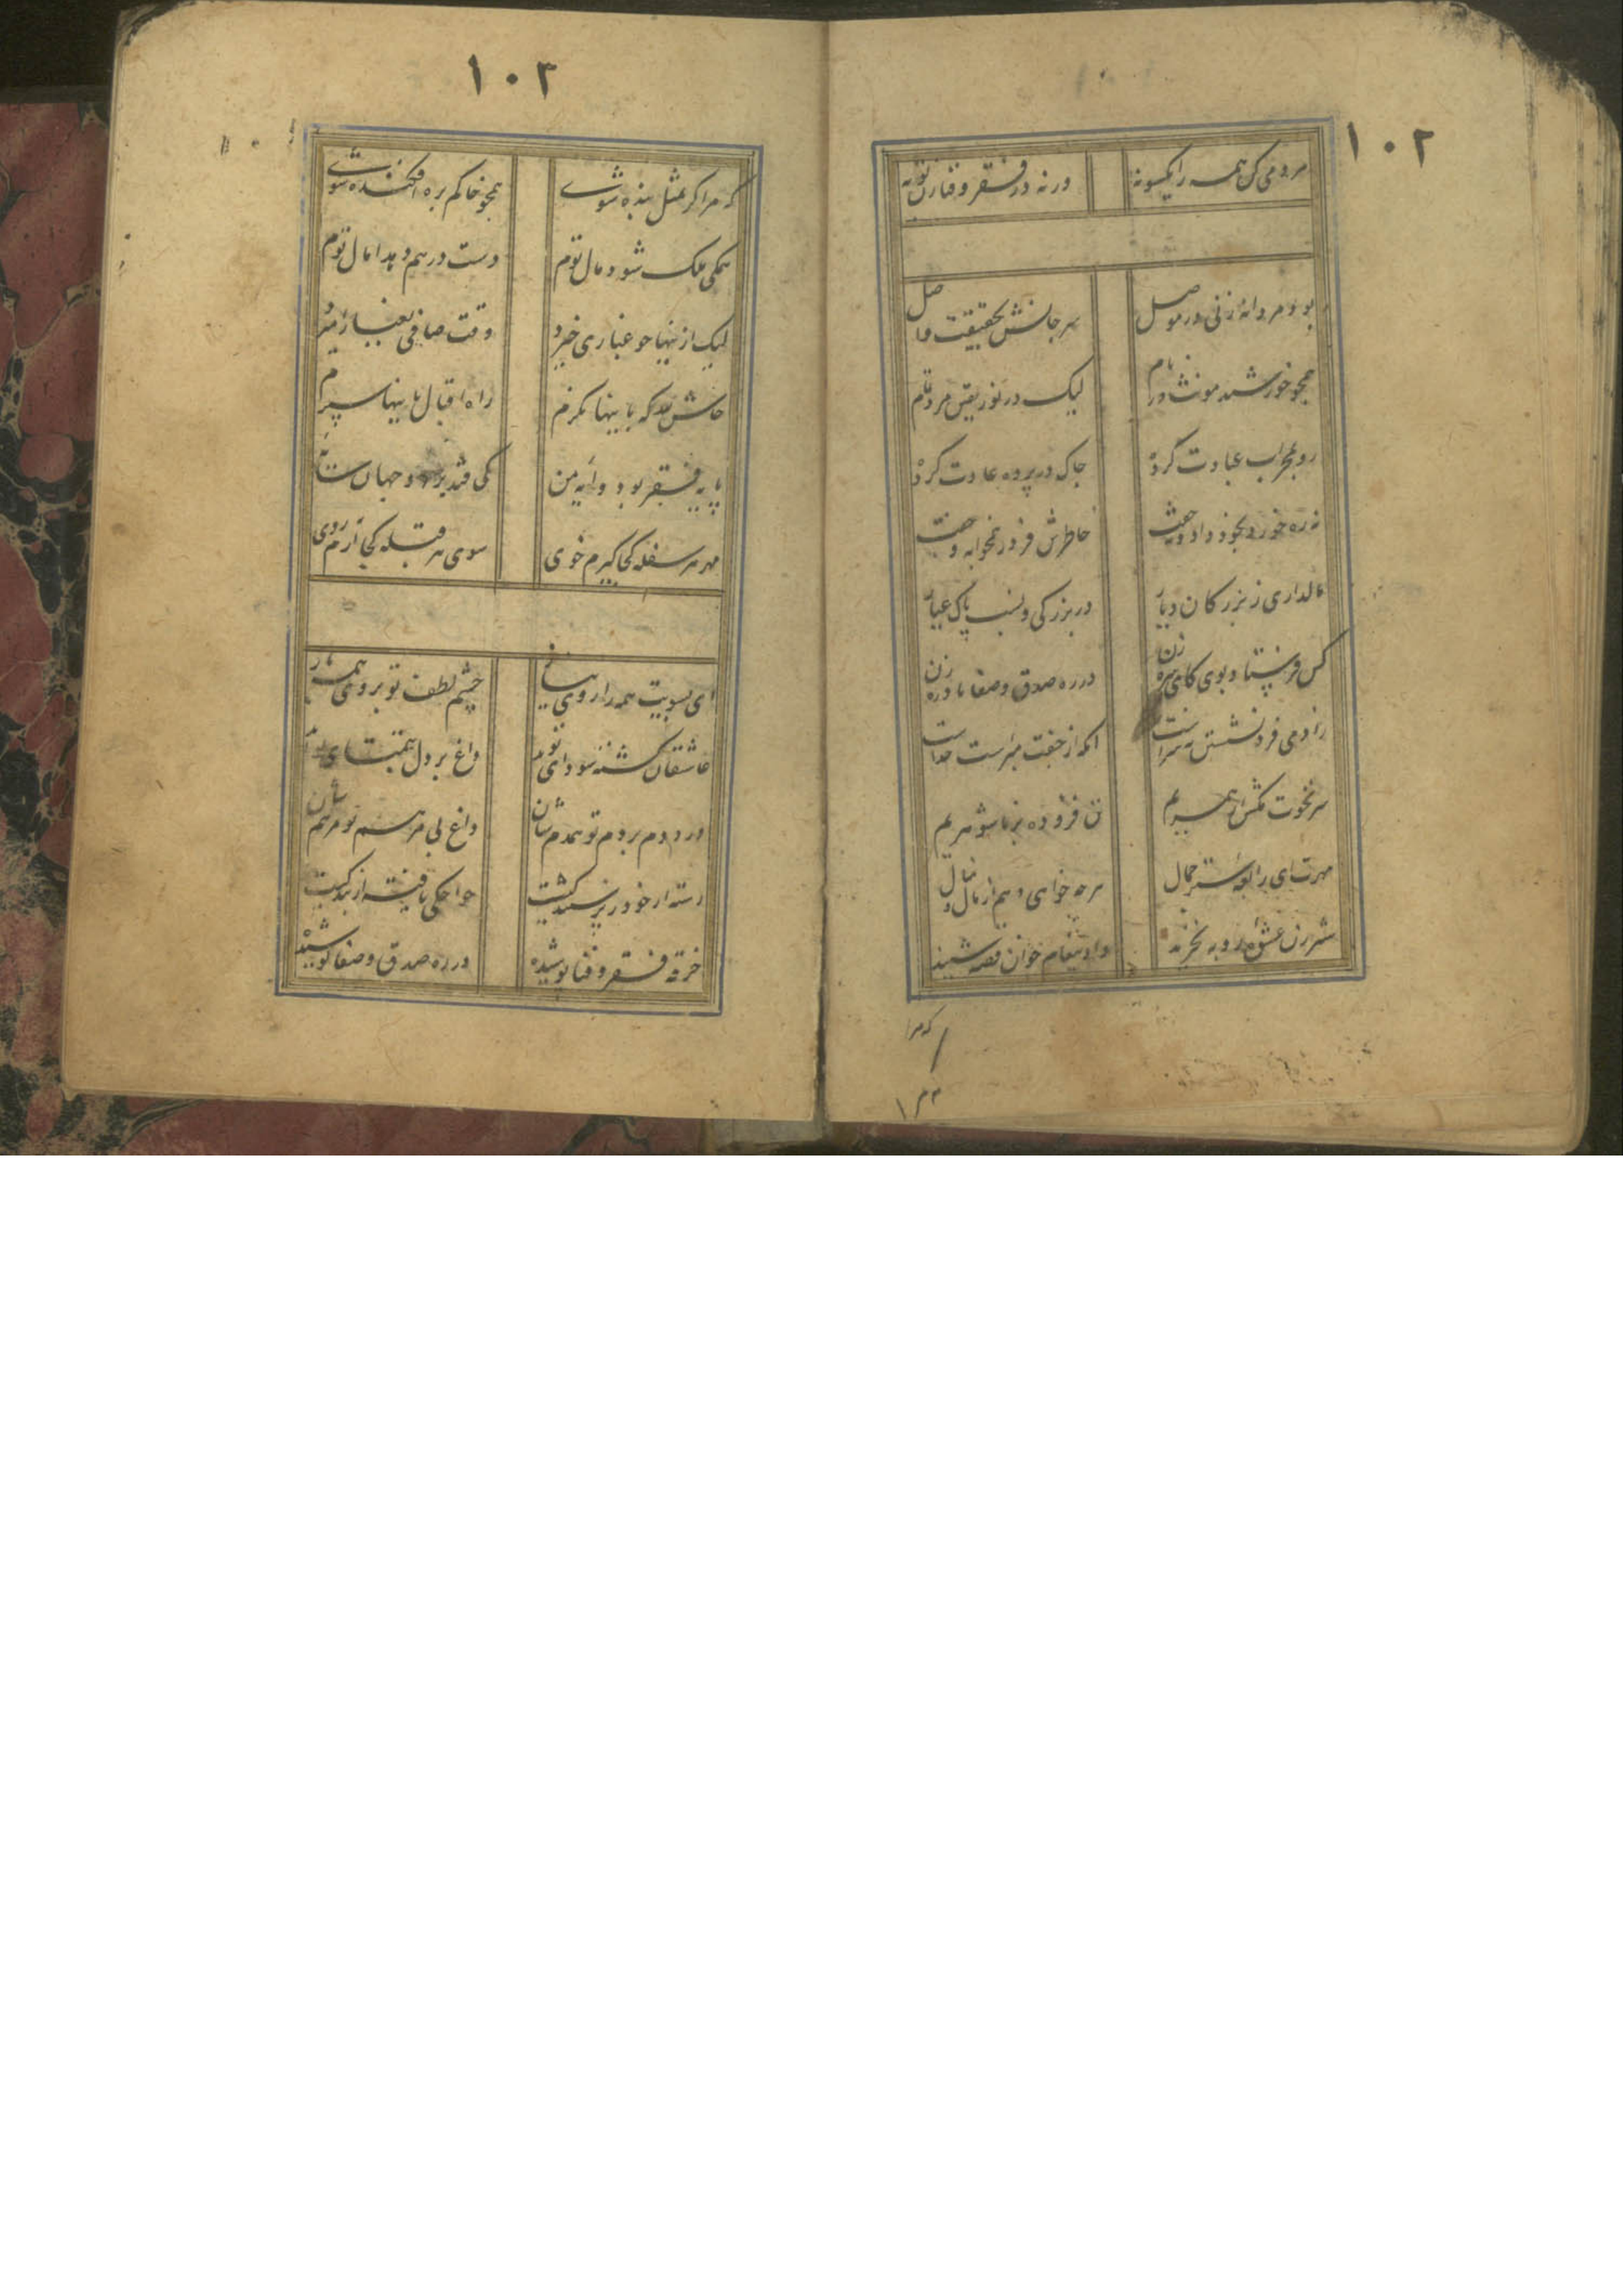 ۱۰۲
مردمی کن همه را یکسو نه ورنه در فقر و فنا زن تو به
بود مردانه زنی در موصل سر جانش بحقیقت واصل
همچو خورشید مونث در نام لیک در نور یقین مرد تمام
رو بمحراب عبادت کرده چاک در پرده عادت کرده
نه ره خورد بخود داد و نه خفت خاطرش فرد ز همخوابه و جفت
مالداری ز بزرگان دیار در بزرگی و نسب پاک عیار
کس فرستاد بوی کای سره زن در ره صدق و صفا نادره زن
زادمی فرد نشستن نه سزاست آنکه از جفت مبراست خداست
سر نخوت مکش از همسریم تن فرو ده بزناشوهریم
مهرت ای رابعه ستر جمال هرچه خواهی دهم از مال و منال
شیر زن عشوه روبه نخرید داد پیغام چو آن قصه شنید
که مرا
۱۰۳
که مرا گر بمثل بنده شوی همچو خاکم بره افکنده شوی
همگی ملک شود مال توام دست در هم دهد آمال توام
لیک ازینها چو غباری خیزد وقت صافی بغبار آمیزد
حاش لله که باینها نگرم راه اقبال باینها سپرم
پایه فقر بود وایه من کی فتد بر دو جهان سایه من
مهر هر سفله کجا گیرم خوی سوی هر قبله کجا آرم روی
ای بسویت همه را روی نیاز چشم لطف تو بروی همه باز
عاشقان کشته سودای تو اند داغ بر دل بتمنای تو اند
درد دم بردم تو همدم شان داغ بی مرهم تو مرهم شان
رسته از خود ز پرستندگیت خواجگی یافته از بندگیت
خرقه فقر و فنا پوشیده در ره صدق و صفا کوشیده